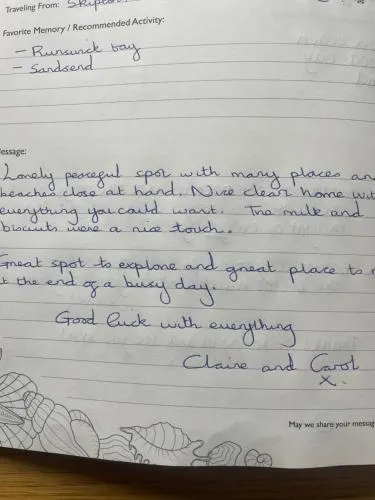 Traveling From: Skipton
Favorite Memory / Recommended Activity:
- Runswick bay
- Sandsend
Message:
Lovely peaceful spot with many places and
beaches close at hand. Nice clean home with
everything you could want. The milk and
biscuits were a nice touch.
Great spot to explore and great place to
at the end of a busy day.
Good luck with everything
Claire and Carol
X.
May we share your message